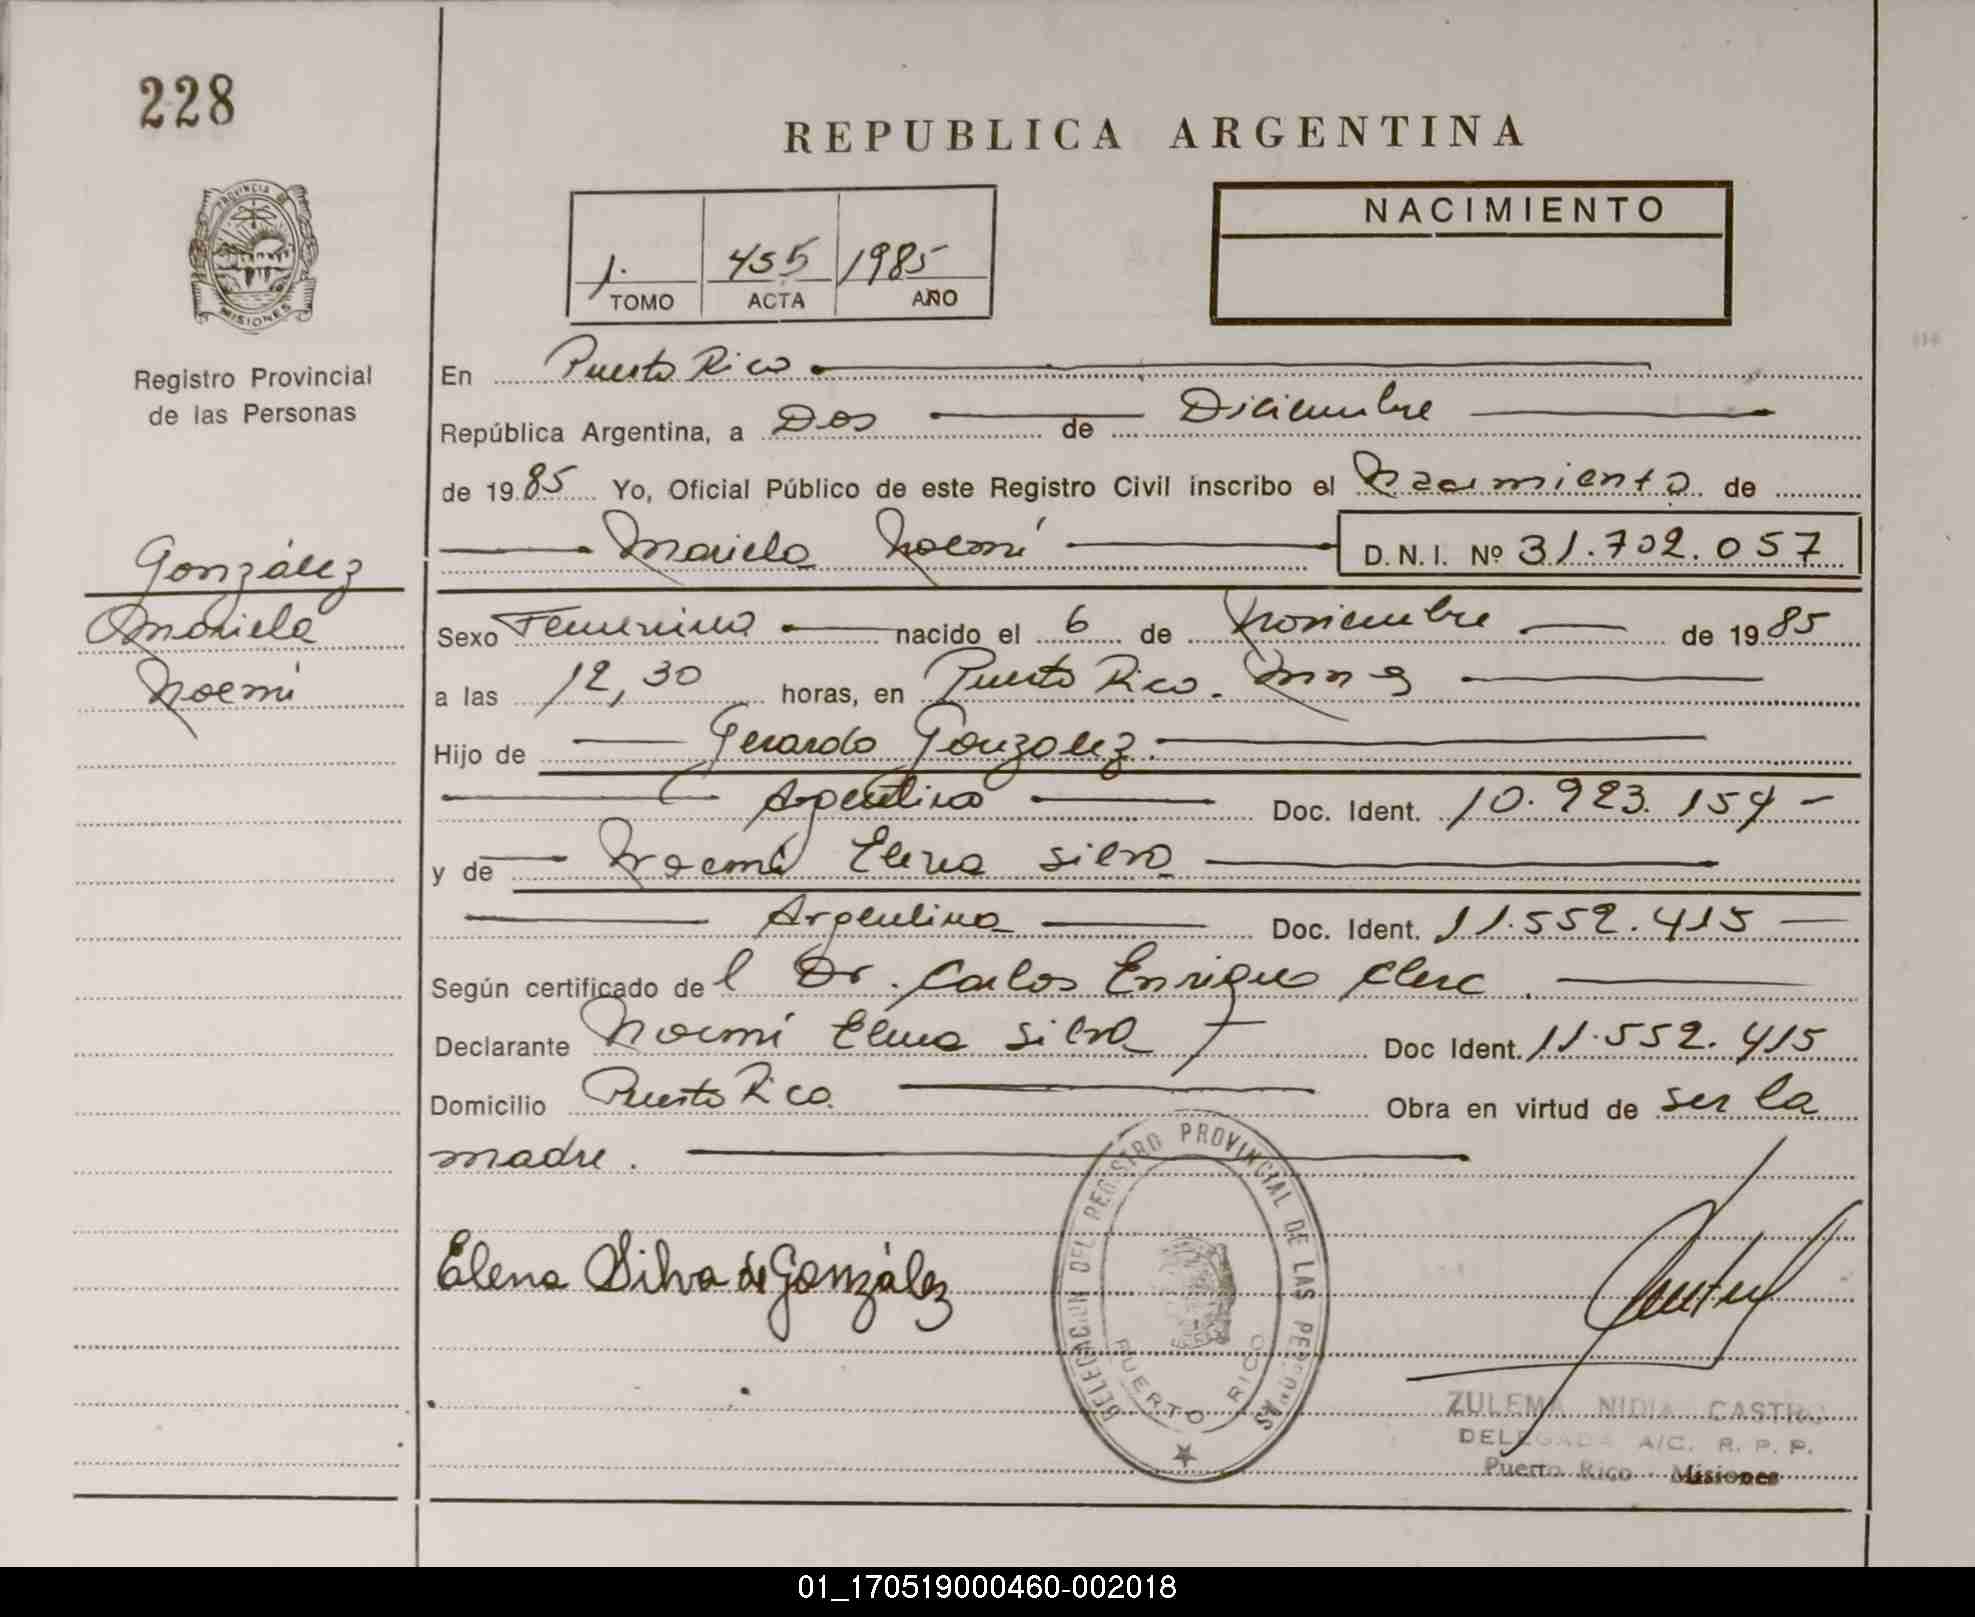 228
REPUBLICA ARGENTINA
PROVINCIA DE MISIONES
Registro Provincial
de las Personas
1. 455 1985
TOMO ACTA AÑO
NACIMIENTO
En Puerto Rico
República Argentina, a Dos de Diciembre
de 19 85 Yo, Oficial Público de este Registro Civil inscribo el Nacimiento de
Mariela Noemí D. N. I. Nº 31.702.057
González
Mariela
Noemí
Sexo Femenino nacido el 6 de Noviembre de 19 85
a las 12,30 horas, en Puerto Rico. Mnes
Hijo de Gerardo Gonzalez.
Argentino Doc. Ident. 10.923.154
y de Noemí Elena Silva
Argentina Doc. Ident. 11.552.415
Según certificado de l Dr. Carlos Enrique Clerc.
Declarante Noemí Elena Silva Doc Ident. 11.552.415
Domicilio Puerto Rico. Obra en virtud de ser la
madre.
Elena Silva de González
DELEGACION DEL REGISTRO PROVINCIAL DE LAS PERSONAS
PUERTO RICO
ZULEMA NIDIA CASTRO
DELEGADA A/C. R. P. P.
Puerto Rico - Misiones
01_170519000460-002018